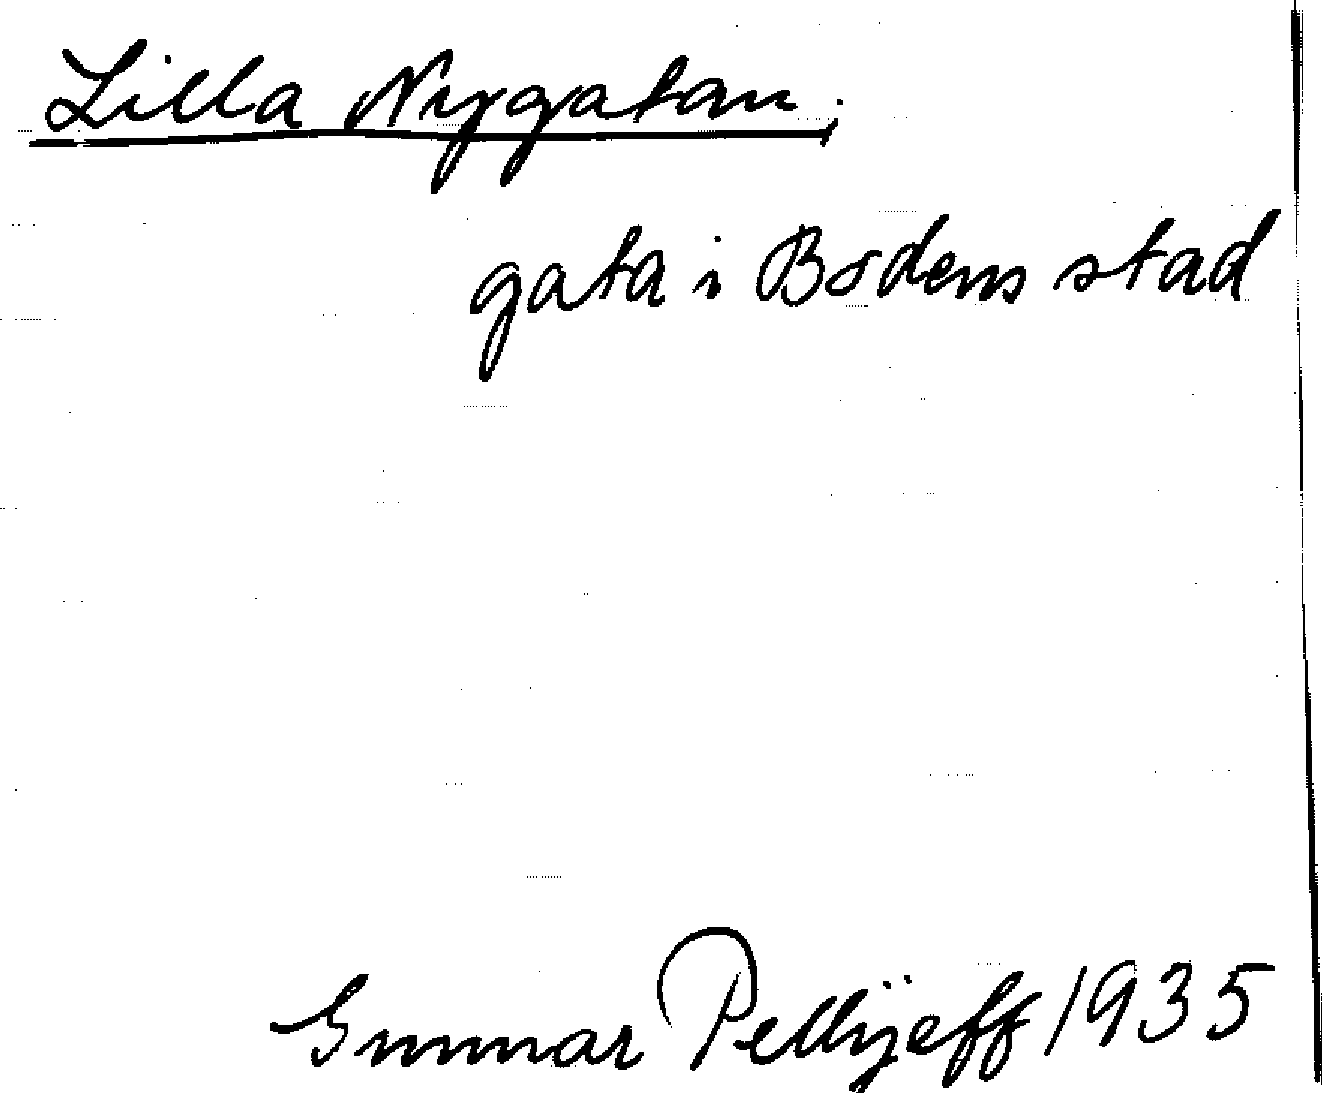 Lilla Nygatan;
gata i Bodens stad
Gunnar Pellijeff 1935